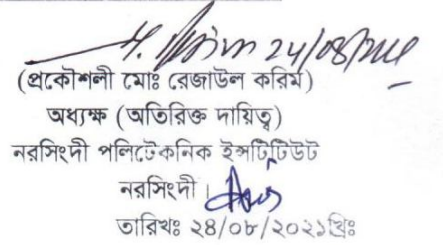 24/08/2021
(প্রকৌশলী মোঃ রেজাউল করিম)
অধ্যক্ষ (অতিরিক্ত দায়িত্ব)
নরসিংদী পলিটেকনিক ইন্সটিটিউট
নরসিংদী।
তারিখঃ ২৪/০৮/২০২১খ্রিঃ